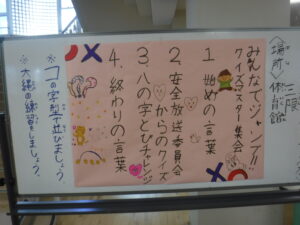 場所 体育館
みんなでジャンプ!!
クイズマスター集会
1. 始めの言葉
2. 安全放送委員会
からのクイズ
3. 八の字とびチャレンジ
4. 終わりの言葉
※コの字型で並びましょう。
※大縄の練習をしましょう。